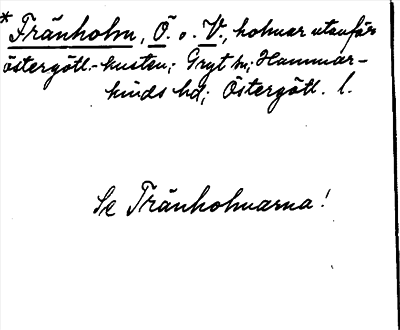 *Fränholm, Ö. o. V., holmar utanför
östergötl.-kusten; Gryt sn; Hammar-
kinds hd; Östergötl. l.
Se Tränholmarna!